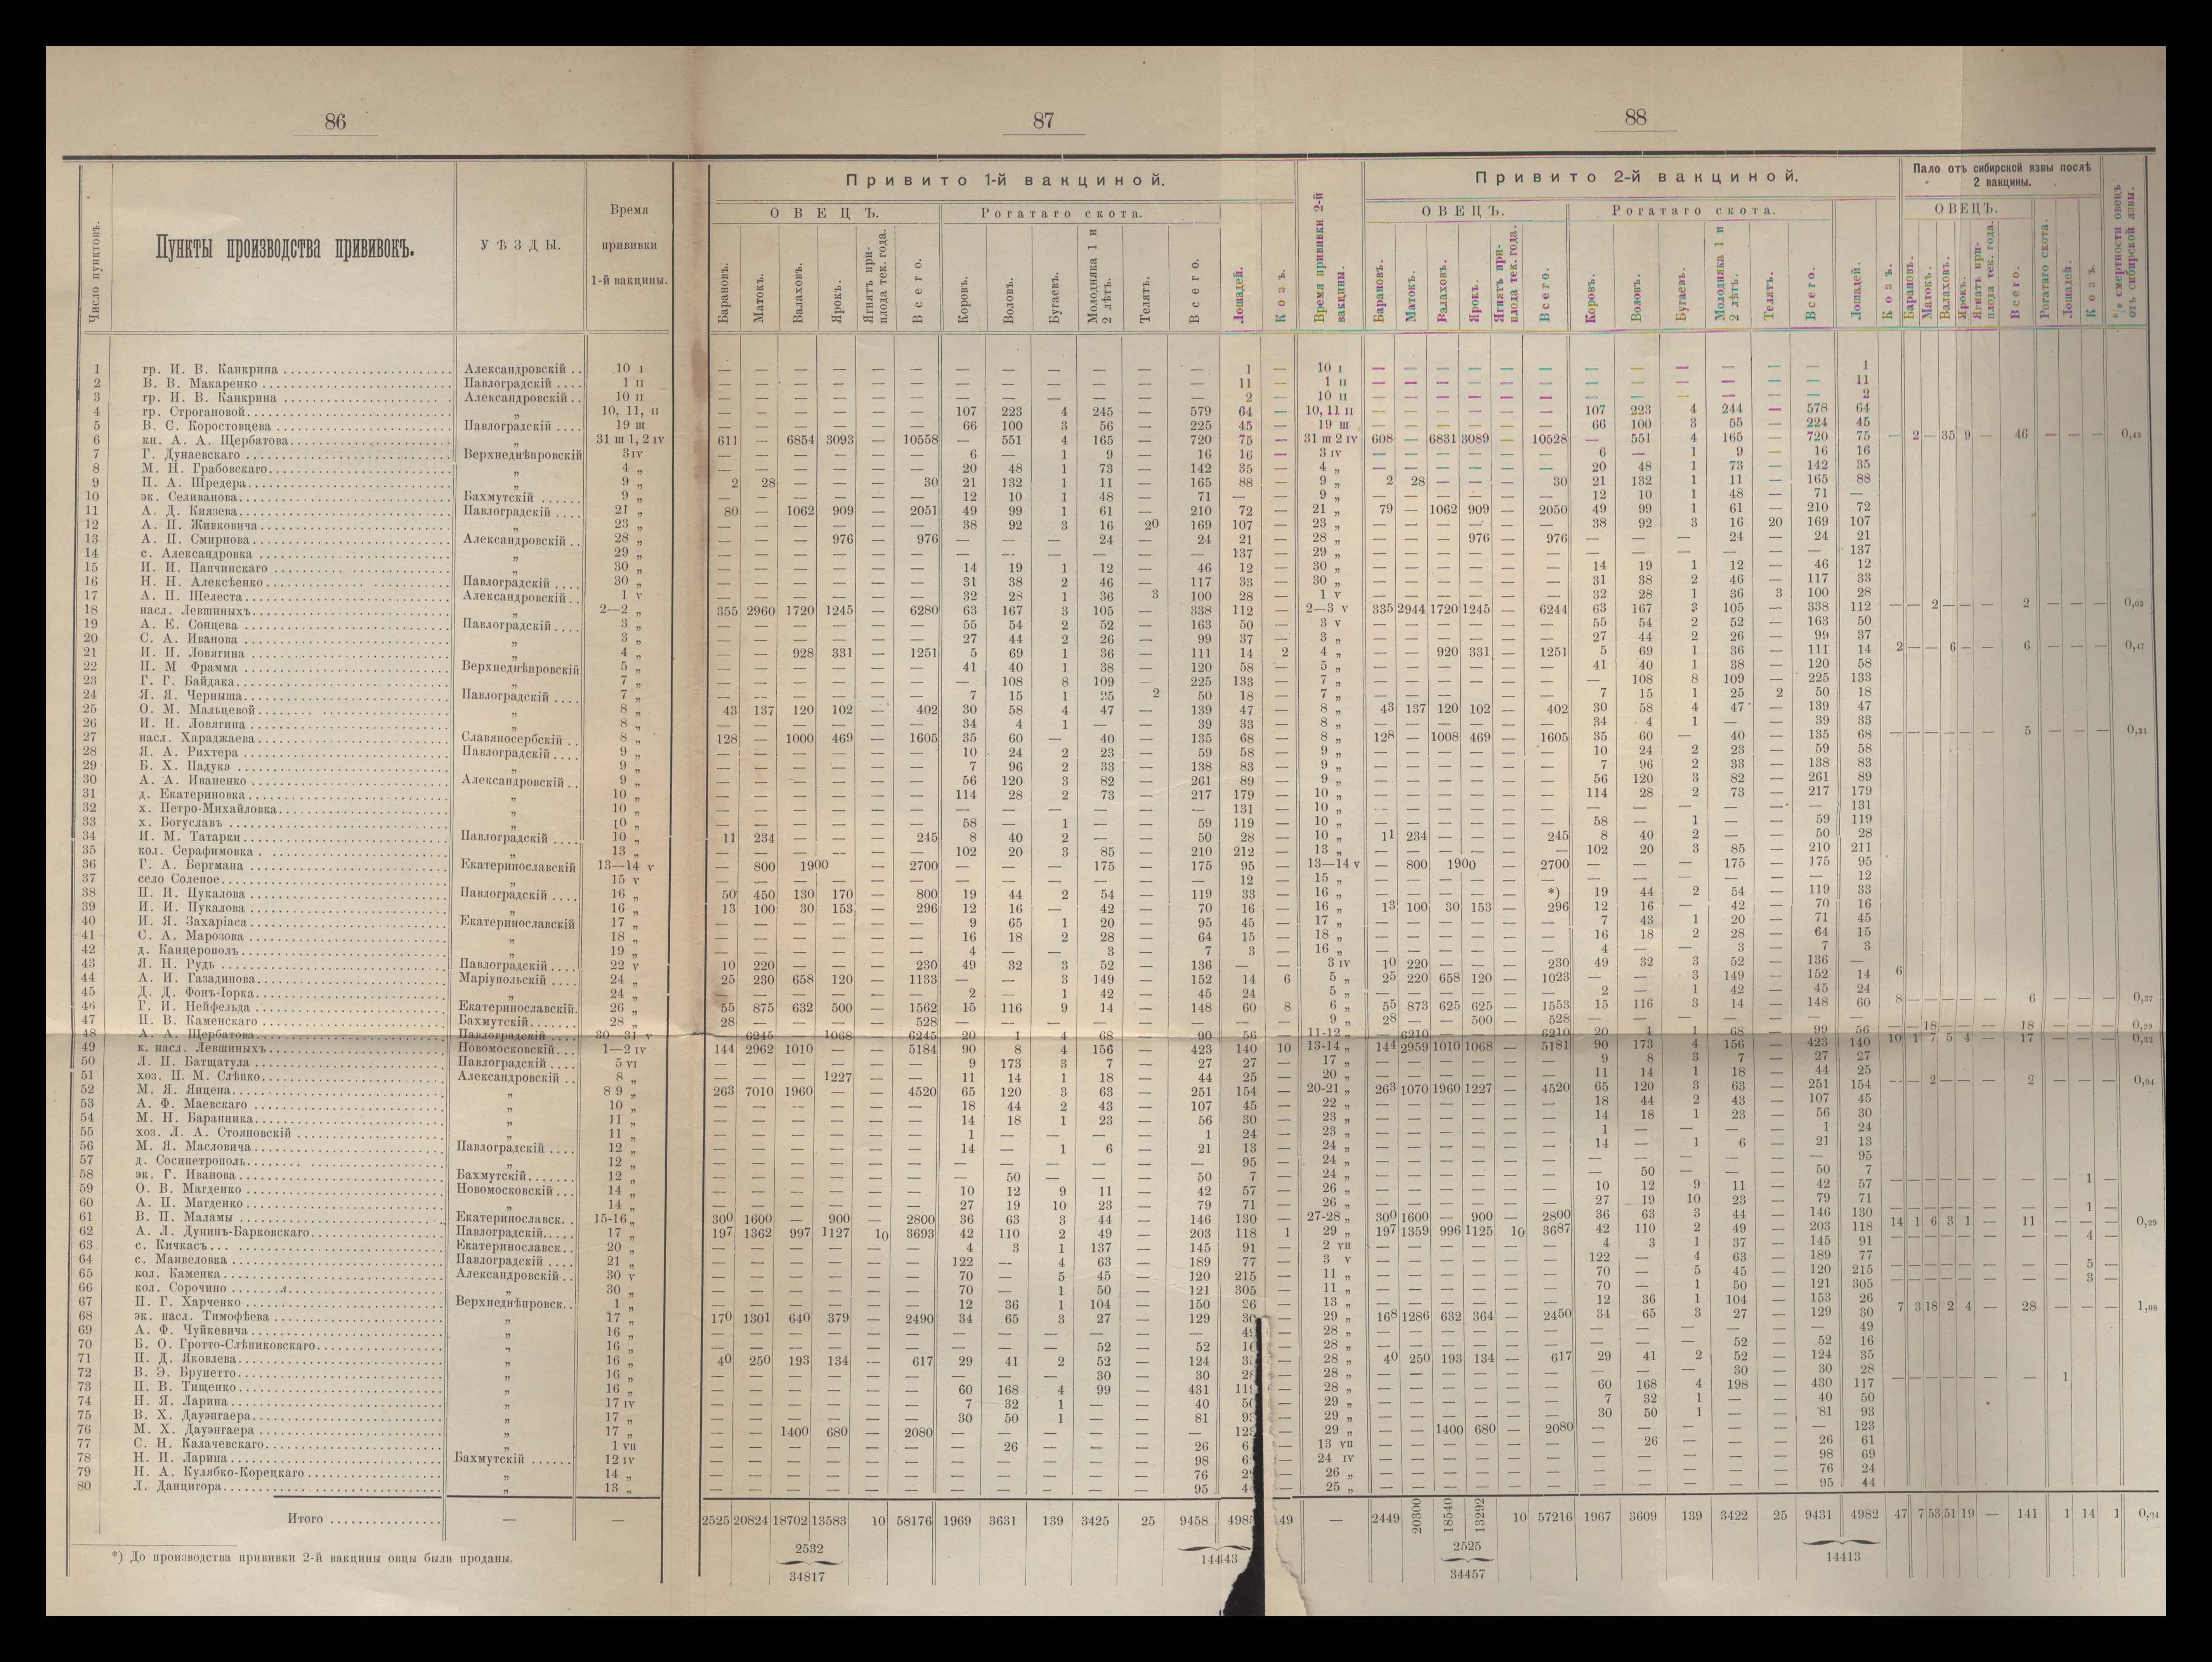 86
87
88
Число пунктовъ.
Пункты производства прививокъ.
УѢЗДЫ.
Время прививки 1-й вакцины.
Привито 1-й вакциной.
ОВЕЦЪ.
Барановъ.
Матокъ.
Валаховъ.
Ярокъ.
Ягнятъ приплода тек. года.
Всего.
Рогатаго скота.
Коровъ.
Воловъ.
Бугаевъ.
Молодняка 1 и 2 лѣтъ.
Телятъ.
Всего.
Лошадей.
Козъ.
Время прививки 2-й вакцины.
Привито 2-й вакциной.
ОВЕЦЪ.
Барановъ.
Матокъ.
Валаховъ.
Ярокъ.
Ягнятъ приплода тек. года.
Всего.
Рогатаго скота.
Коровъ.
Воловъ.
Бугаевъ.
Молодняка 1 и 2 лѣтъ.
Телятъ.
Всего.
Лошадей.
Козъ.
Пало отъ сибирской язвы послѣ 2 вакцины.
ОВЕЦЪ.
Барановъ.
Матокъ.
Валаховъ.
Ярокъ.
Ягнятъ приплода тек. года.
Всего.
Рогатаго скота.
Лошадей.
Козъ.
% смертности овецъ отъ сибирской язвы.
1 гр. И. В. Канкрина Александровскій 10 I — — — — — — — — — — — — 1 — 10 I — — — — — — — — — — — — 1
2 В. В. Макаренко Павлоградскій 1 II — — — — — — — — — — — — 11 — 1 II — — — — — — — — — — — — 11
3 гр. И. В. Канкрина Александровскій 10 II — — — — — — — — — — — — 2 — 10 II — — — — — — — — — — — — 2
4 гр. Строгановой „ 10, 11, II — — — — — — 107 223 4 245 — 579 64 — 10, 11 II — — — — — — 107 223 4 244 — 578 64
5 В. С. Коростовцева Павлоградскій 19 III — — — — — — 66 100 3 56 — 225 45 — 19 III — — — — — — 66 100 3 55 — 224 45
6 кн. А. А. Щербатова „ 31 III 1, 2 IV 611 — 6854 3093 — 10558 — 551 4 165 — 720 75 — 31 III 2 IV 608 — 6831 3089 — 10528 — 551 4 165 — 720 75 — 2 — 35 9 — 46 — — — 0,43
7 Г. Дунаевскаго Верхнеднѣпровскій 3 IV — — — — — — 6 — 1 9 — 16 16 — 3 IV — — — — — — 6 — 1 9 — 16 16
8 М. Н. Грабовскаго „ 4 „ — — — — — — 20 48 1 73 — 142 35 — 4 „ — — — — — — 20 48 1 73 — 142 35
9 П. А. Шредера „ 9 „ 2 28 — — — 30 21 132 1 11 — 165 88 — 9 „ 2 28 — — — 30 21 132 1 11 — 165 88
10 эк. Селиванова Бахмутскій 9 „ — — — — — — 12 10 1 48 — 71 — — 9 „ — — — — — — 12 10 1 48 — 71 —
11 А. Д. Князева Павлоградскій 21 „ 80 — 1062 909 — 2051 49 99 1 61 — 210 72 — 21 „ 79 — 1062 909 — 2050 49 99 1 61 — 210 72
12 А. П. Живковича „ 23 „ — — — — — — 38 92 3 16 20 169 107 — 23 „ — — — — — — 38 92 3 16 20 169 107
13 А. П. Смирнова Александровскій 28 „ — — — 976 — 976 — — — 24 — 24 21 — 28 „ — — — 976 — 976 — — — 24 — 24 21
14 с. Александровка „ 29 „ — — — — — — — — — — — — 137 — 29 „ — — — — — — — — — — — — 137
15 И. И. Папчинскаго „ 30 „ — — — — — — 14 19 1 12 — 46 12 — 30 „ — — — — — — 14 19 1 12 — 46 12
16 Н. Н. Алексѣенко Павлоградскій 30 „ — — — — — — 31 38 2 46 — 117 33 — 30 „ — — — — — — 31 38 2 46 — 117 33
17 А. П. Шелеста Александровскій 1 V — — — — — — 32 28 1 36 3 100 28 — 1 V — — — — — — 32 28 1 36 3 100 28
18 насл. Левшиныхъ „ 2—2 „ 355 2960 1720 1245 — 6280 63 167 3 105 — 338 112 — 2—3 V 335 2944 1720 1245 — 6244 63 167 3 105 — 338 112 — — 2 — — — 2 — — — 0,03
19 А. Е. Сонцева Павлоградскій 3 „ — — — — — — 55 54 2 52 — 163 50 — 3 V — — — — — — 55 54 2 52 — 163 50
20 С. А. Иванова „ 3 „ — — — — — — 27 44 2 26 — 99 37 — 3 „ — — — — — — 27 44 2 26 — 99 37
21 И. П. Ловягина „ 4 „ — — 928 331 — 1251 5 69 1 36 — 111 14 2 4 „ — — 920 331 — 1251 5 69 1 36 — 111 14 2 — — 6 — — 6 — — — 0,47
22 П. М Фрамма Верхнеднѣпровскій 5 „ — — — — — — 41 40 1 38 — 120 58 — 5 „ — — — — — — 41 40 1 38 — 120 58
23 Г. Г. Байдака „ 7 „ — — — — — — — 108 8 109 — 225 133 — 7 „ — — — — — — — 108 8 109 — 225 133
24 Я. Я. Черныша Павлоградскій 7 „ — — — — — — 7 15 1 25 2 50 18 — 7 „ — — — — — — 7 15 1 25 2 50 18
25 О. М. Мальцевой „ 8 „ 43 137 120 102 — 402 30 58 4 47 — 139 47 — 8 „ 43 137 120 102 — 402 30 58 4 47 — 139 47
26 И. И. Ловягина „ 8 „ — — — — — — 34 4 1 — — 39 33 — 8 „ — — — — — — 34 4 1 — — 39 33
27 насл. Хараджаева Славяносербскій 8 „ 128 — 1000 469 — 1605 35 60 — 40 — 135 68 — 8 „ 128 — 1008 469 — 1605 35 60 — 40 — 135 68 — — — — — — 5 — — — 0,31
28 Я. А. Рихтера Павлоградскій 9 „ — — — — — — 10 24 2 23 — 59 58 — 9 „ — — — — — — 10 24 2 23 — 59 58
29 Б. Х. Падукэ „ 9 „ — — — — — — 7 96 2 33 — 138 83 — 9 „ — — — — — — 7 96 2 33 — 138 83
30 А. А. Иваненко Александровскій 9 „ — — — — — — 56 120 3 82 — 261 89 — 9 „ — — — — — — 56 120 3 82 — 261 89
31 д. Екатериновка „ 10 „ — — — — — — 114 28 2 73 — 217 179 — 10 „ — — — — — — 114 28 2 73 — 217 179
32 х. Петро-Михайловка „ 10 „ — — — — — — — — — — — — 131 — 10 „ — — — — — — — — — — — — 131
33 х. Богуславъ „ 10 „ — — — — — — 58 — 1 — — 59 119 — 10 „ — — — — — — 58 — 1 — — 59 119
34 И. М. Татарки Павлоградскій 10 „ 11 234 — — — 245 8 40 2 — — 50 28 — 10 „ 11 234 — — — 245 8 40 2 — — 50 28
35 кол. Серафимовка „ 13 „ — — — — — — 102 20 3 85 — 210 212 — 13 „ — — — — — — 102 20 3 85 — 210 211
36 Г. А. Бергмана Екатеринославскій 13—14 V — 800 1900 — 2700 — — — 175 — 175 95 — 13—14 V — 800 1900 — 2700 — — — 175 — 175 95
37 село Соленое „ 15 V — — — — — — — — — — — — 12 — 15 „ — — — — — — — — — — — — 12
38 П. И. Цукалова Павлоградскій 16 „ 50 450 130 170 — 800 19 44 2 54 — 119 33 — 16 „ — — — — — *) 19 44 2 54 — 119 33
39 И. И. Цукалова „ 16 „ 13 100 30 153 — 296 12 16 — 42 — 70 16 — 16 „ 13 100 30 153 — 296 12 16 — 42 — 70 16
40 И. Я. Захаріаса Екатеринославскій 17 „ — — — — — — 9 65 1 20 — 95 45 — 17 „ — — — — — — 7 43 1 20 — 71 45
41 С. А. Марозова „ 18 „ — — — — — — 16 18 2 28 — 64 15 — 18 „ — — — — — — 16 18 2 28 — 64 15
42 д. Канцерополъ „ 19 „ — — — — — — 4 — — 3 — 7 3 — 16 „ — — — — — — 4 — — 3 — 7 3
43 Я. Н. Рудь Павлоградскій 22 V 10 220 — — — 230 49 32 3 52 — 136 — — 3 IV 10 220 — — — 230 49 32 3 52 — 136 —
44 А. И. Газадинова Маріупольскій 24 „ 25 230 658 120 — 1133 — — 3 149 — 152 14 6 5 „ 25 220 658 120 — 1023 — — 3 149 — 152 14 6
45 Д. Д. Фонъ-Іорка „ 24 „ — — — — — — 2 — 1 42 — 45 24 — 5 „ — — — — — — 2 — 1 42 — 45 24
46 Г. И. Нейфельда Екатеринославскій 26 „ 55 875 632 500 — 1562 15 116 9 14 — 148 60 8 6 „ 55 873 625 625 — 1553 15 116 3 14 — 148 60 8 — — — — — 6 — — — 0,37
47 П. В. Каменскаго Бахмутскій 28 „ 28 — — — — 528 — — — — — — — — 9 „ 28 — — 500 — 528 — — — — — — —
48 А. А. Щербатова Павлоградскій 30—31 V — 6245 — 1068 — 6245 20 1 4 68 — 90 56 — 11-12 „ — 6210 — — — 6210 20 4 1 68 — 99 56 — — 18 — — — 18 — — — 0,29
49 к. насл. Левшиныхъ Новомосковскій 1—2 IV 144 2962 1010 — — 5184 90 8 4 156 — 423 140 10 13-14 „ 144 2959 1010 1068 — 5181 90 173 4 156 — 423 140 10 1 7 5 4 — 17 — — — 0,32
50 Л. П. Батщатула Павлоградскій 5 VI — — — — — — 9 173 3 7 — 27 27 — 17 „ — — — — — — 9 8 3 7 — 27 27
51 хоз. П. М. Слѣпко Александровскій 8 „ — — — 1227 — — 11 14 1 18 — 44 25 — 20 „ — — — — — — 11 14 1 18 — 44 25
52 М. Я. Янцена „ 8 9 „ 263 7010 1960 — — 4520 65 120 3 63 — 251 154 — 20-21 „ 263 1070 1960 1227 — 4520 65 120 3 63 — 251 154 — — 2 — — — 2 — — — 0,04
53 А. Ф. Маевскаго „ 10 „ — — — — — — 18 44 2 43 — 107 45 — 22 „ — — — — — — 18 44 2 43 — 107 45
54 М. Н. Баранника „ 11 „ — — — — — — 14 18 1 23 — 56 30 — 23 „ — — — — — — 14 18 1 23 — 56 30
55 хоз. Л. А. Стояновскій „ 11 „ — — — — — — 1 — — — — 1 24 — 23 „ — — — — — — 1 — — — — 1 24
56 М. Я. Масловича Павлоградскій 12 „ — — — — — — 14 — 1 6 — 21 13 — 24 „ — — — — — — 14 — 1 6 — 21 13
57 д. Сосипетрополь „ 12 „ — — — — — — — — — — — — 95 — 24 „ — — — — — — — — — — — — 95
58 эк. Г. Иванова Бахмутскій 12 „ — — — — — — — 50 — — — 50 7 — 24 „ — — — — — — — 50 — — — 50 7
59 О. В. Магденко Новомосковскій 14 „ — — — — — — 10 12 9 11 — 42 57 — 26 „ — — — — — — 10 12 9 11 — 42 57 — — — — — — — — 1 —
60 А. П. Магденко „ 14 „ — — — — — — 27 19 10 23 — 79 71 — 26 „ — — — — — — 27 19 10 23 — 79 71
61 В. П. Маламы Екатеринославск. 15-16 „ 300 1600 — 900 — 2800 36 63 3 44 — 146 130 — 27-28 „ 300 1600 — 900 — 2800 36 63 3 44 — 146 130 — — — — — — — — 1 —
62 А. Л. Дунинъ-Барковскаго Павлоградскій 17 „ 197 1362 997 1127 10 3693 42 110 2 49 — 203 118 1 29 „ 197 1359 996 1125 10 3687 42 110 2 49 — 203 118 14 1 6 3 1 — 11 — — — 0,29
63 с. Кичкасъ Екатеринославск. 20 „ — — — — — — 4 3 1 137 — 145 91 — 2 VII — — — — — — 4 3 1 37 — 145 91 — — — — — — — — 4 —
64 с. Манвеловка Павлоградскій 21 „ — — — — — — 122 — 4 63 — 189 77 — 3 V — — — — — — 122 — 4 63 — 189 77
65 кол. Каменка Александровскій 30 V — — — — — — 70 — 5 45 — 120 215 — 11 „ — — — — — — 70 — 5 45 — 120 215 — — — — — — — — 5 —
66 кол. Сорочино „ 30 „ — — — — — — 70 — 1 50 — 121 305 — 11 „ — — — — — — 70 — 1 50 — 121 305 — — — — — — — — 3 —
67 П. Г. Харченко Верхнеднѣпровск. 1 „ — — — — — — 12 36 1 104 — 150 26 — 13 „ — — — — — — 12 36 1 104 — 153 26
68 эк. насл. Тимофѣева „ 17 „ 170 1301 640 379 — 2490 34 65 3 27 — 129 30 — 29 „ 168 1286 632 364 — 2450 34 65 3 27 — 129 30 7 3 18 2 4 — 28 — — — 1,08
69 А. Ф. Чуйкевича „ 16 „ — — — — — — — — — — — — — 28 „ — — — — — — — — — — — — 49
70 Б. О. Гротто-Слѣпиковскаго „ 16 „ — — — — — — — — — 52 — 52 — 28 „ — — — — — — — — — 52 — 52 16
71 П. Д. Яковлева „ 16 „ 40 250 193 134 — 617 29 41 2 52 — 124 — 28 „ 40 250 193 134 — 617 29 41 2 52 — 124 35
72 В. Э. Брунетто „ 16 „ — — — — — — — — — 30 — 30 — 28 „ — — — — — — — — — 30 — 30 28
73 П. В. Тищенко „ 16 „ — — — — — — 60 168 4 99 — 431 — 28 „ — — — — — — 60 168 4 198 — 430 117 — — — — — — — 1
74 Н. Я. Ларина „ 17 IV — — — — — — 7 32 1 — — 40 — 29 „ — — — — — — 7 32 1 — — 40 50
75 В. Х. Дауэнгаера „ 17 „ — — — — — — 30 50 1 — — 81 — 29 „ — — — — — — 30 50 1 — — 81 93
76 М. Х. Дауэнгаера „ 17 „ — — 1400 680 — 2080 — — — — — — — 29 „ — — 1400 680 — 2080 — — — — — — 123
77 С. Н. Калачевскаго „ 1 VII — — — — — — — 26 — — — 26 — 13 VII — — — — — — — 26 — — — 26 61
78 Н. И. Ларина Бахмутскій 12 IV — — — — — — — — — — — 98 — 24 IV — — — — — — — — — — — 98 69
79 Н. А. Кулябко-Корецкаго „ 14 „ — — — — — — — — — — — 76 — 26 „ — — — — — — — — — — — 76 24
80 Л. Данцигора „ 13 „ — — — — — — — — — — — 95 — 25 „ — — — — — — — — — — — 95 44
Итого — — 2525 20824 18702 13583 10 58176 1969 3631 139 3425 25 9458 4985 49 — 2449 20300 18540 13292 10 57216 1967 3609 139 3422 25 9431 4982 47 7 53 51 19 — 141 1 14 1 0,24
2532
34817
14443
2525
34457
14413
*) До производства прививки 2-й вакцины овцы были проданы.